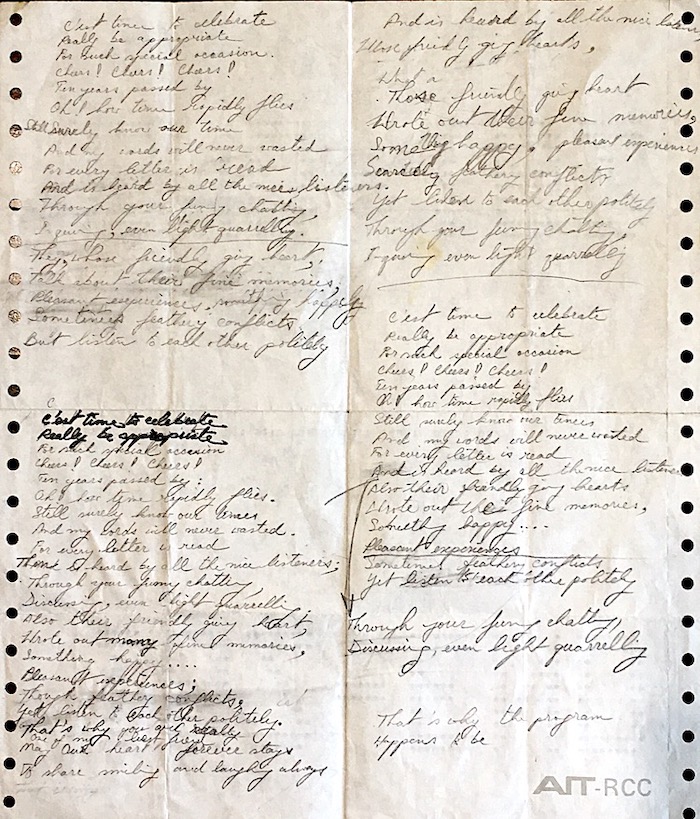 C'est time to celebrate
Really be appropriate
For such special occasion.
Cheers! Cheers! Cheers!
Ten years passed by
Oh! how time rapidly flies
Still surely know our time
And my words will never wasted
For every letter is read
And is heard by all the nice listeners.
Through your funny chatting,
even light quarrelling.
They, whose friendly heart,
Talk about their fine memories,
Pleasant experiences, happy
Sometimes feathery conflicts
But listen to each other politely
C'est time to celebrate
Really be appropriate
For such special occasion
Cheers! Cheers! Cheers!
Ten years passed by:
Oh! how time rapidly flies.
Still surely know our times
And my words will never wasted.
For every letter is read
heard by all the nice listeners;
Through your funny chatting,
Discussing, even light quarrelling;
Also their friendly heart,
Wrote out many fine memories,
Something happy....
Pleasant experiences;
Though feathery conflicts,
Yet listen to each other politely.
That's why you really
May our heart forever stays
To share smiling and laughing always
And is heard by all the nice
Whose friendly hearts,
What a
Those friendly heart
Wrote out their fine memories,
Something happy, pleasant experiences
feathery conflicts
Yet listen to each other politely
Through your funny chatting,
even light quarrelling
C'est time to celebrate
Really be appropriate
For such special occasion
Cheers! Cheers! Cheers!
Ten years passed by
Oh! how time rapidly flies
Still surely know our times
And my words will never wasted
For every letter is read
And is heard by all the nice listeners
Also their friendly hearts
Wrote out fine memories,
Something happy....
Pleasant experiences
Sometimes feathery conflicts
Yet listen to each other politely
Through your funny chatting,
Discussing, even light quarrelling
That is why the program
Happens to be
AIT-RCC